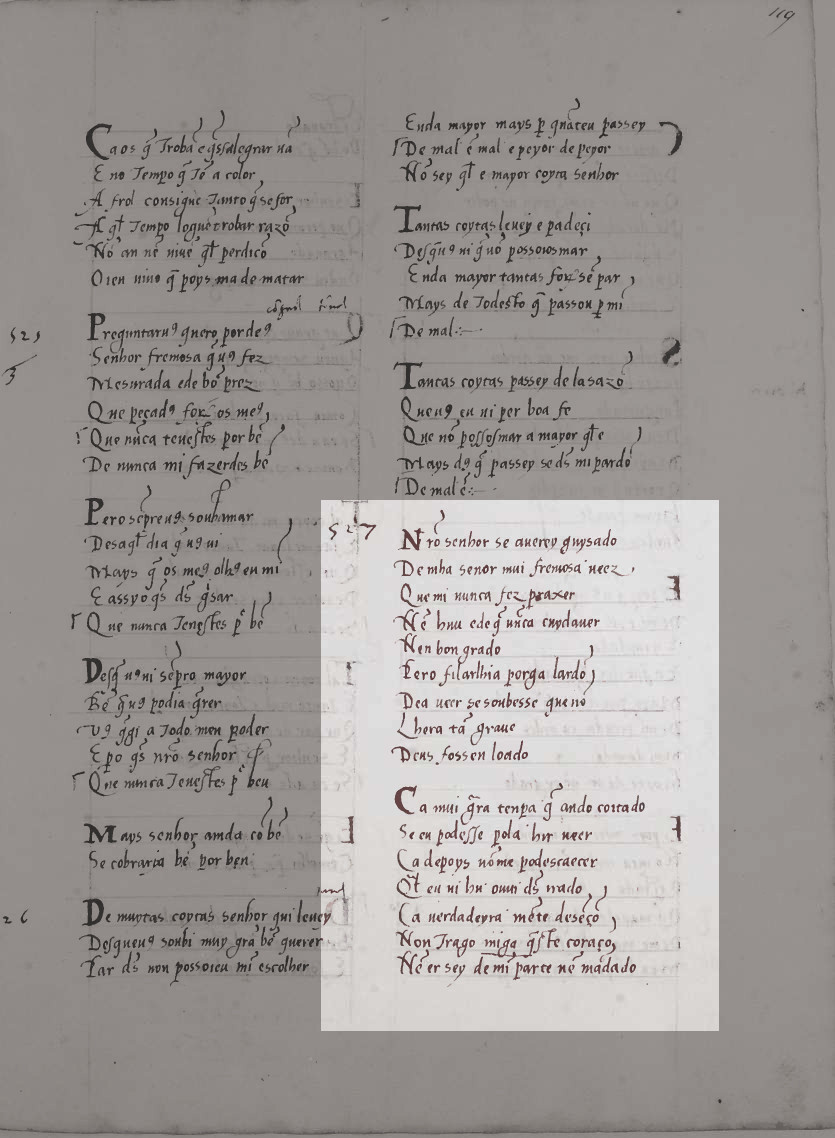 119
Ca os q̃ Trobã e q̃ss alegrar uã
E no Tempo q̃ Tẽ a color
A frol consigue Tanto q̃ se for
A q̃l Tempo loguẽ trobar razõ
Nõ an nẽ uiuẽ q̃l perdicõ
Oi en uiuo q̃ poys ma de matar
525
3
Preguntaru9 quero por de9
Senhor fremosa q̃ u9 fez
Mesurada e de bõ prez
Que pecad9 forõ os me9
Que nũca teuestes por bẽ
De nunca mi fazerdes bẽ
Pero sẽpre u9 soub amar
Des aq̃l dia q̃ u9 ui
Mays q̃ os me9 olh9 en mi
E assy o q̃s d̃s guisar
Que nunca Teuestes p̃ bẽ
Des q̃ u9 ui sẽpr o mayor
Bẽ q̃ u9 podia q̃rer
V9 q̃gi a Todo meu poder
E po q̃s nr̃o senhor
Que nunca Teuestes p̃ beu
Mays senhor amda cõ bẽ
Se cobraria bẽ por ben
26
De muytas coytas senhor qui leuey
Des que u9 soubi muy grã bẽ querer
Par d̃s non posso ieu mi escolher
Enda mayor mays p̃ quãt eu passey
De mal ẽ mal e peyor de peyor
Nõ sey q̃l e mayor coyta senhor
Tantas coytas leuey e padeçi
Des q̃ u9 ui q̃ nõ posso iosmar
Enda mayor tantas forõ sẽ par
Mays de Todesto q̃ passou p̃ mi
De mal
Tantas coytas passey de la sazõ
Que u9 eu ui per boa fe
Que nõ poss osmar a mayor q̃l e
Mays d9 q̃ passey se d̃s mi pardõ
De mal ẽ
527
Nr̃o senhor se auerey guysado
De mha senor mui fremosa ueez
Que mi nunca fez praxer
Nẽ huu ede q̃ uũca cuydauer
Nen bon grado
Pero filarlhia por ga lardõ
Dea ueer se soubesse que nõ
Lhera tã graue
Deus foss en loado
Ca mui grã tenpa q̃ ando coitado
Se eu podesse pola hir ueer
Ca depoys nõme podescaecer
Q̃l eu ui hu ouui d̃s irado
Ca uerdadeyra mẽte desẽcõ
Non Trago miga q̃ste coraço
Nẽ er sey de mi parte nẽ mãdado